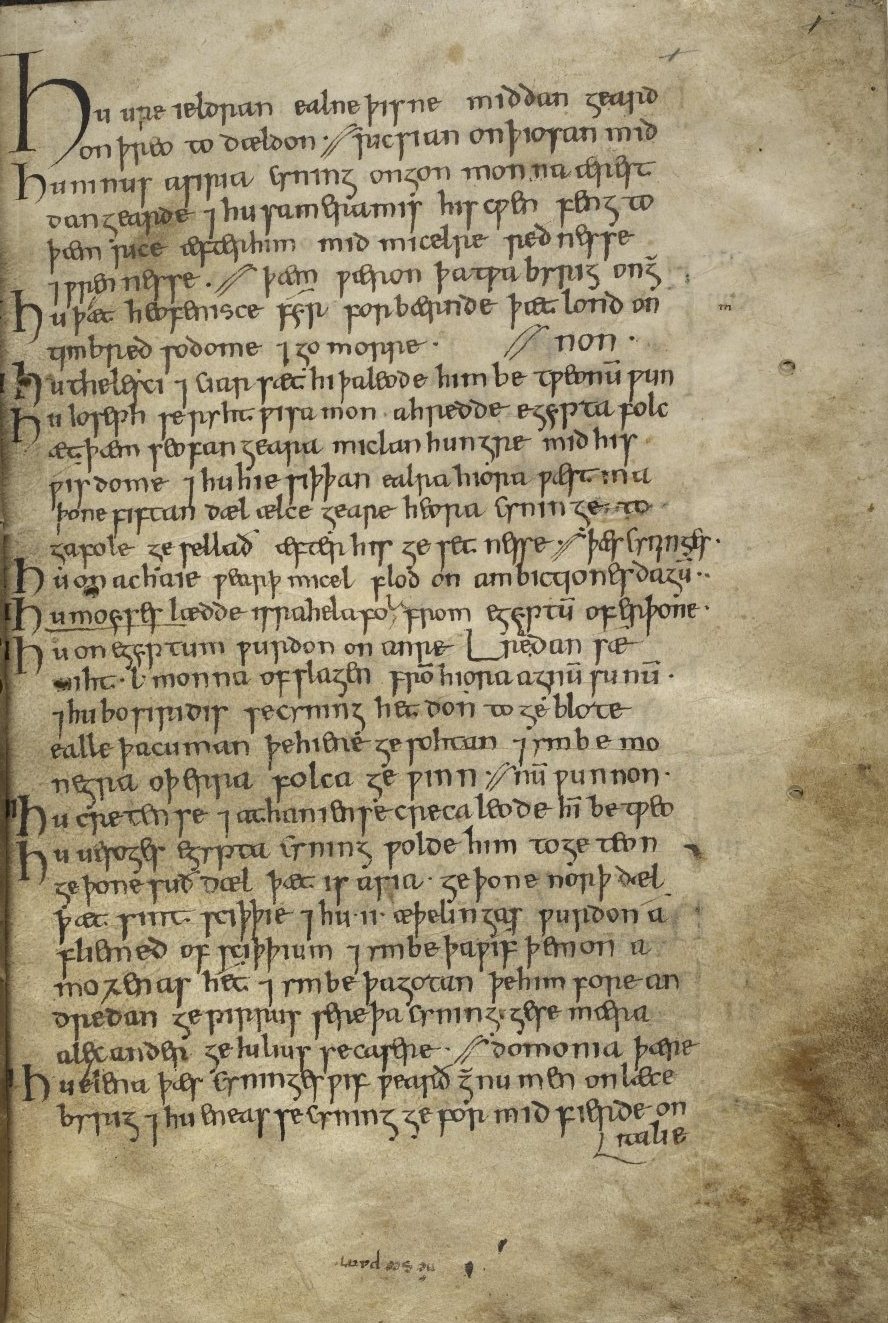 Hu ure ieldran ealne þisne middan geard
on þreo to dældon · ⫽ ricsian on þiosan mid
Hu ninus asiria cyning ongon monna ærest
dangearde ⁊ hu sameramis his cƿen feng to
þæm rice æfter him mid micelre reðnesse
⁊ ƿrennesse · ⫽ þæm ƿæron þa tƿa byrig onᵹ̄
Hu þæt heofenisce fẏr forbærnde þæt lond on
timbred sodome ⁊ gomorre · ⫽ non ·
Hu thelesci ⁊ ciarsæthi þa leode him betƿeonū ƿun
Hu Ioseph se ryhtƿisa mon ahredde egypta folc
æt þæm seofan geara miclan hungre mid his
ƿisdome ⁊ hu hie siþþan ealra hiora ƿæstma
þone fiftan dæl ælce geare heora cyninge to
gafole gesellað æfter his gesetnesse · ⫽ þæs cyninges ·
Hu on achaie ƿearþ micel flod on ambictiones dagū ·
Hu moyses lædde israhela folc from egyptū ofer þone ·
Hu on egyptum ƿurdon on anre readan sæ
niht · L · monna ofslagen frō hiora agnū sunū ·
⁊ hu bosiridis se cyning het don to geblote
ealle þa cuman þe hiene gesohtan ⁊ ymbe mo
negra oþerra folca geƿinn · ⫽ nū ƿunnon ·
Hu cretense ⁊ athaniense creca leode hī betƿeo
Hu uesoges egypta cyning ƿolde him to geteon
ge þone suð dæl þæt is asia · ge þone norþ dæl
þæt sint sciþþie ⁊ hu · ii · æþelingas ƿurdon a
fliemed of sciþþium ⁊ ymbe þa ƿif þe mon a
mozenas het ⁊ ymbe þa gotan þe him fore an
dredan ge pirrus se reþa cyning · ge se mæra
alexander ge Iulius se casere · ⫽ domonia þære
Hu elena þæs cyninges ƿif ƿearð ᵹ̄numen on læce
byrig ⁊ hu eneas se cyning ge for mid fierde on
italie